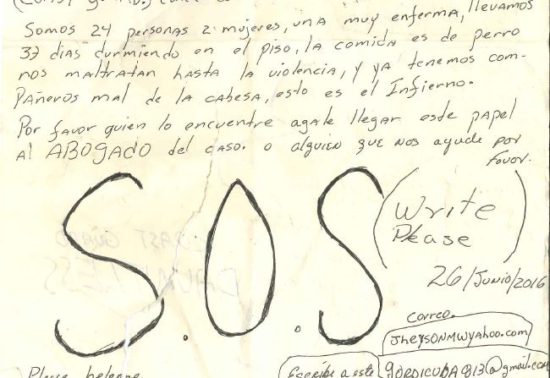 Somos 24 personas 2 mujeres, una muy enferma, llevamos
37 dias durmiendo en el piso, la comida es de perro
nos maltratan hasta la violencia, y ya tenemos com-
pañeros mal de la cabesa, esto es el Infierno.
Por favor quien lo encuentre agale llegar este papel
al ABOGADO del caso. o alguien que nos ayude por
favor.
S.O.S
(Write
Please)
26/Junio/2016
correo.
Jheysonmwyahoo.com
Escriba a este gordicuba913@gmail.com